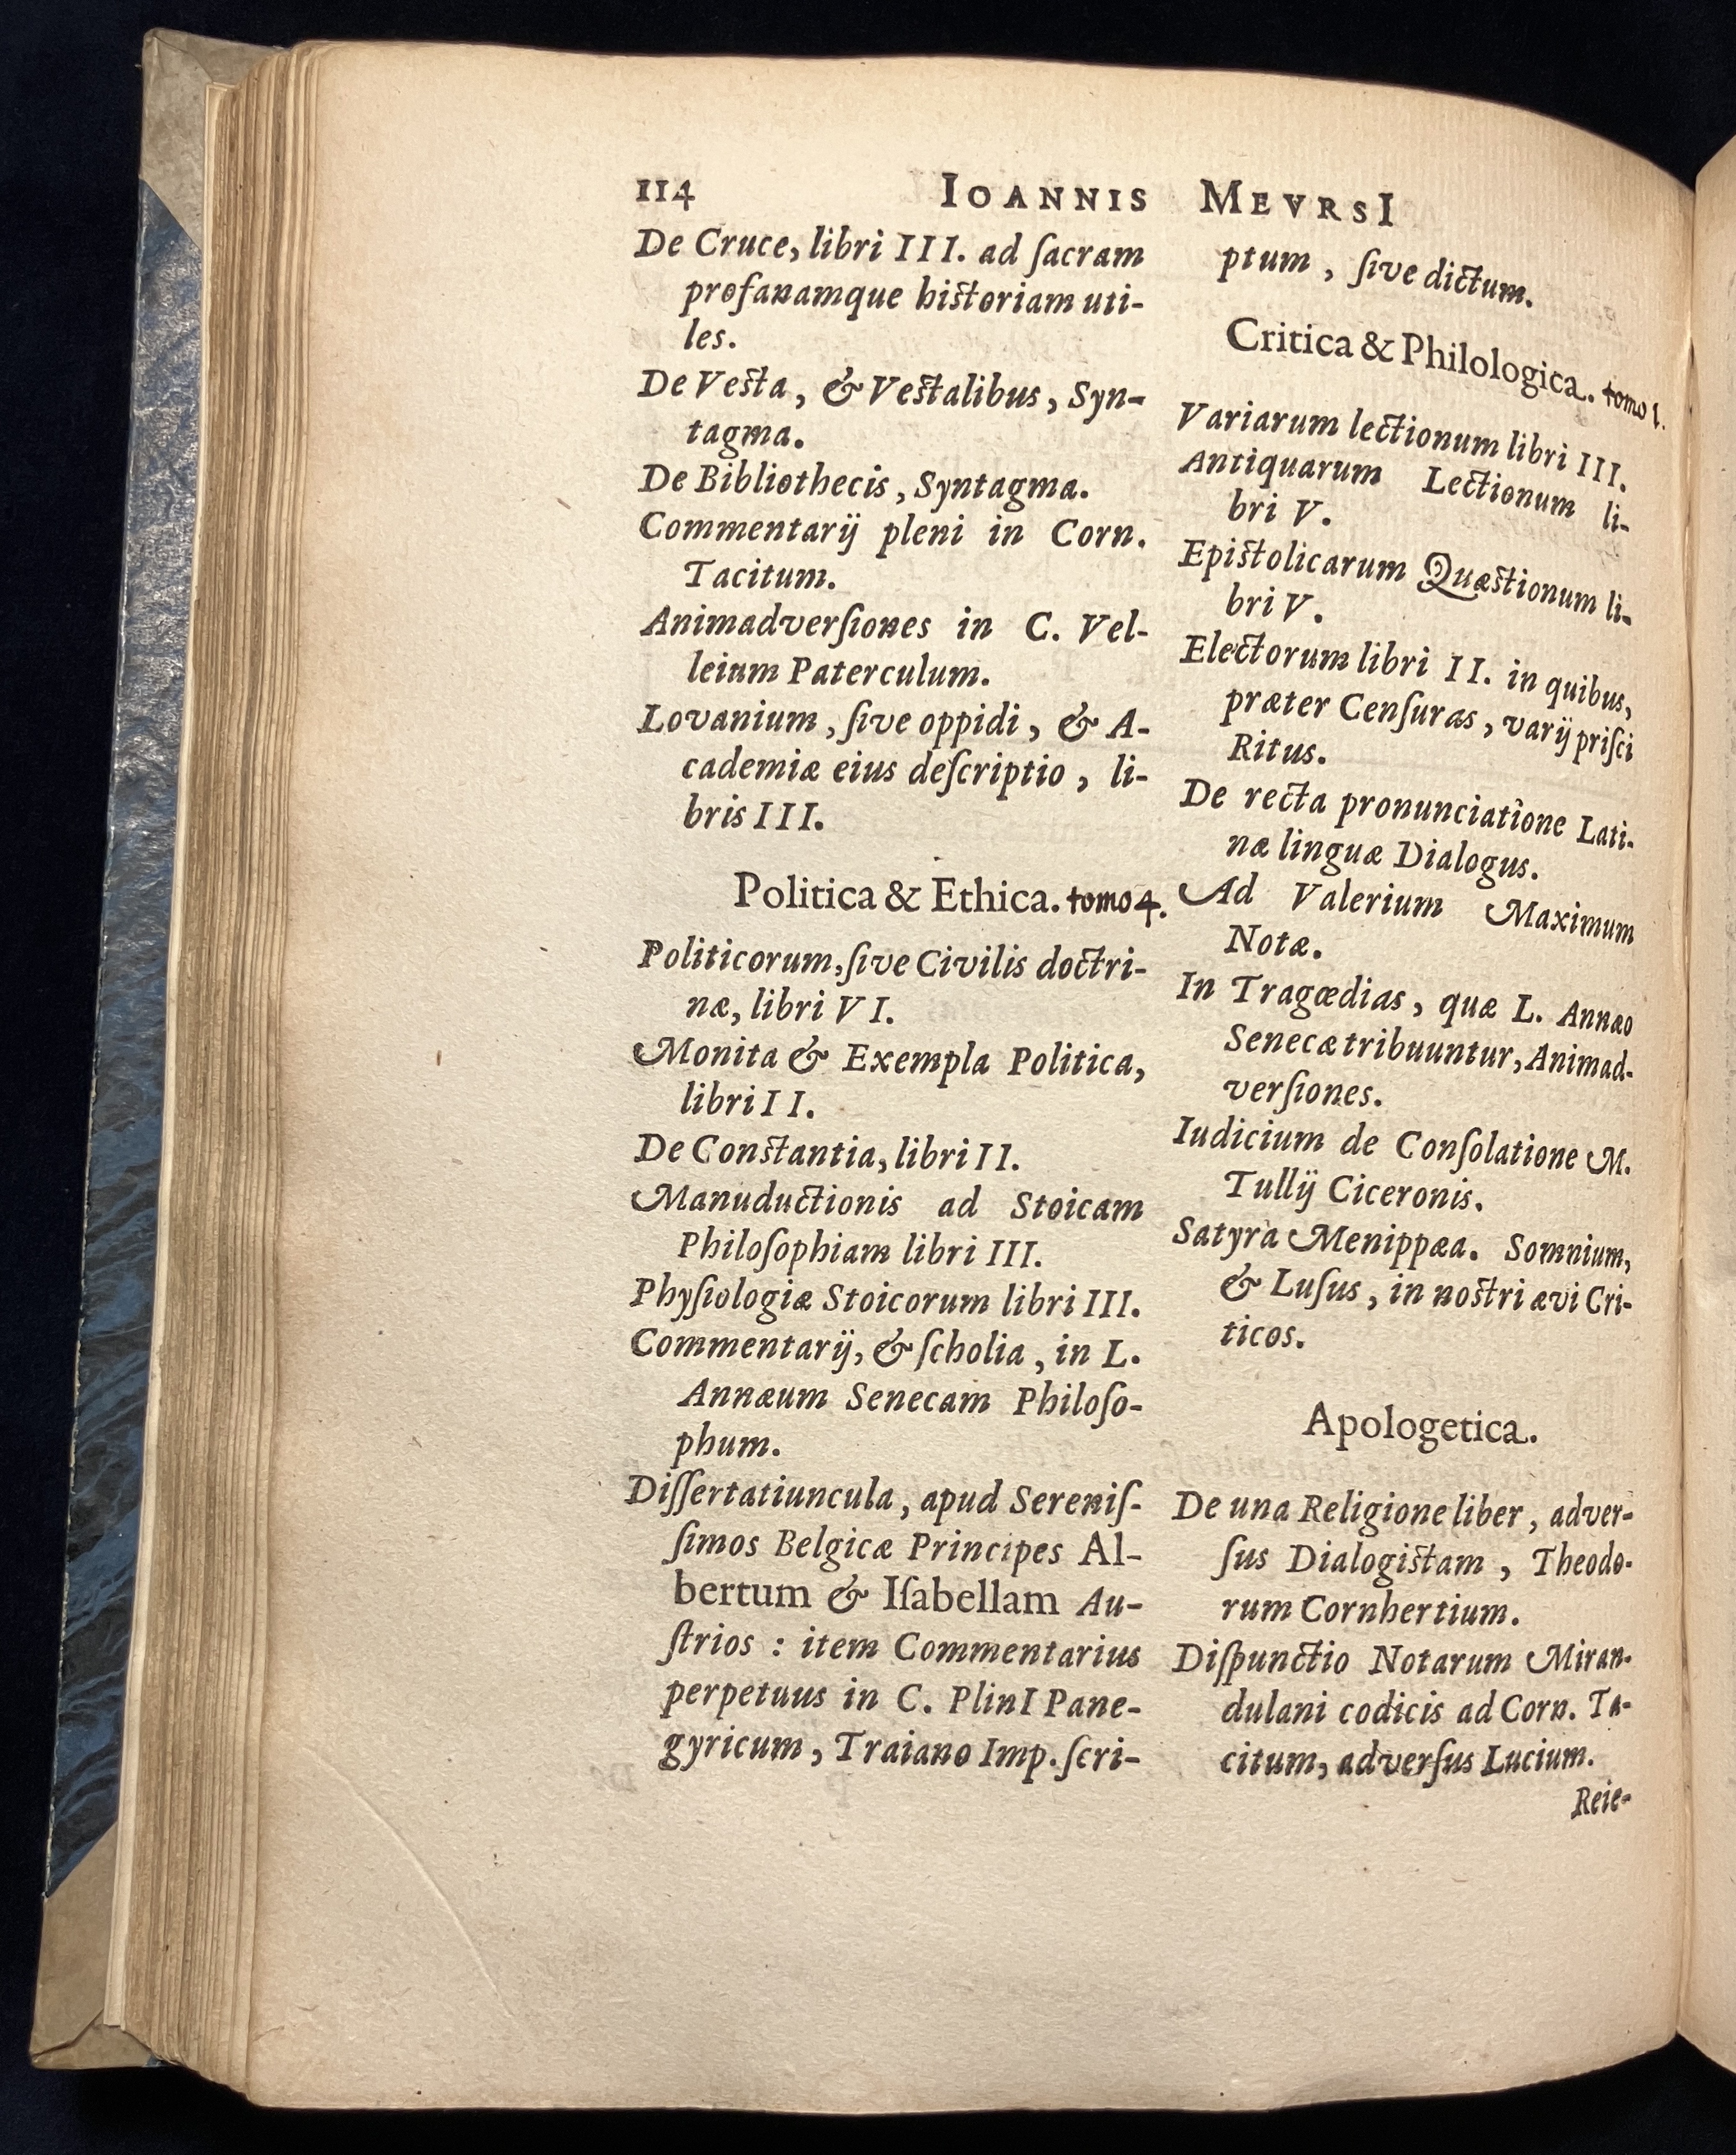 114 IOANNIS MEVRSI
De Cruce, libri III. ad ſacram
profanamque hiſtoriam uti-
les.
De Veſta, & Veſtalibus, Syn-
tagma.
De Bibliothecis, Syntagma.
Commentarij pleni in Corn.
Tacitum.
Animadverſiones in C. Vel-
leium Paterculum.
Lovanium, ſive oppidi, & A-
cademiæ eius deſcriptio, li-
bris III.
Politica & Ethica. tomo 4.
Politicorum, ſive Civilis doctri-
næ, libri VI.
Monita & Exempla Politica,
libri II.
De Conſtantia, libri II.
Manuductionis ad Stoicam
Philoſophiam libri III.
Phyſiologiæ Stoicorum libri III.
Commentarij, & ſcholia, in L.
Annæum Senecam Philoſo-
phum.
Diſſertatiuncula, apud Sereniſ-
ſimos Belgicæ Principes Al-
bertum & Iſabellam Au-
ſtrios : item Commentarius
perpetuus in C. PlinI Pane-
gyricum, Traiano Imp. ſcri-
ptum, ſive dictum.
Critica & Philologica. tomo 1.
Variarum lectionum libri III.
Antiquarum Lectionum li-
bri V.
Epiſtolicarum Quæſtionum li-
bri V.
Electorum libri II. in quibus,
præter Cenſuras, varij priſci
Ritus.
De recta pronunciatione Lati-
næ linguæ Dialogus.
Ad Valerium Maximum
Notæ.
In Tragœdias, quæ L. Annæo
Senecæ tribuuntur, Animad-
verſiones.
Iudicium de Conſolatione M.
Tullij Ciceronis.
Satyra Menippæa. Somnium,
& Luſus, in noſtri ævi Cri-
ticos.
Apologetica.
De una Religione liber, adver-
ſus Dialogiſtam, Theodo-
rum Cornhertium.
Diſpunctio Notarum Miran-
dulani codicis ad Corn. Ta-
citum, adverſus Lucium.
Reie-